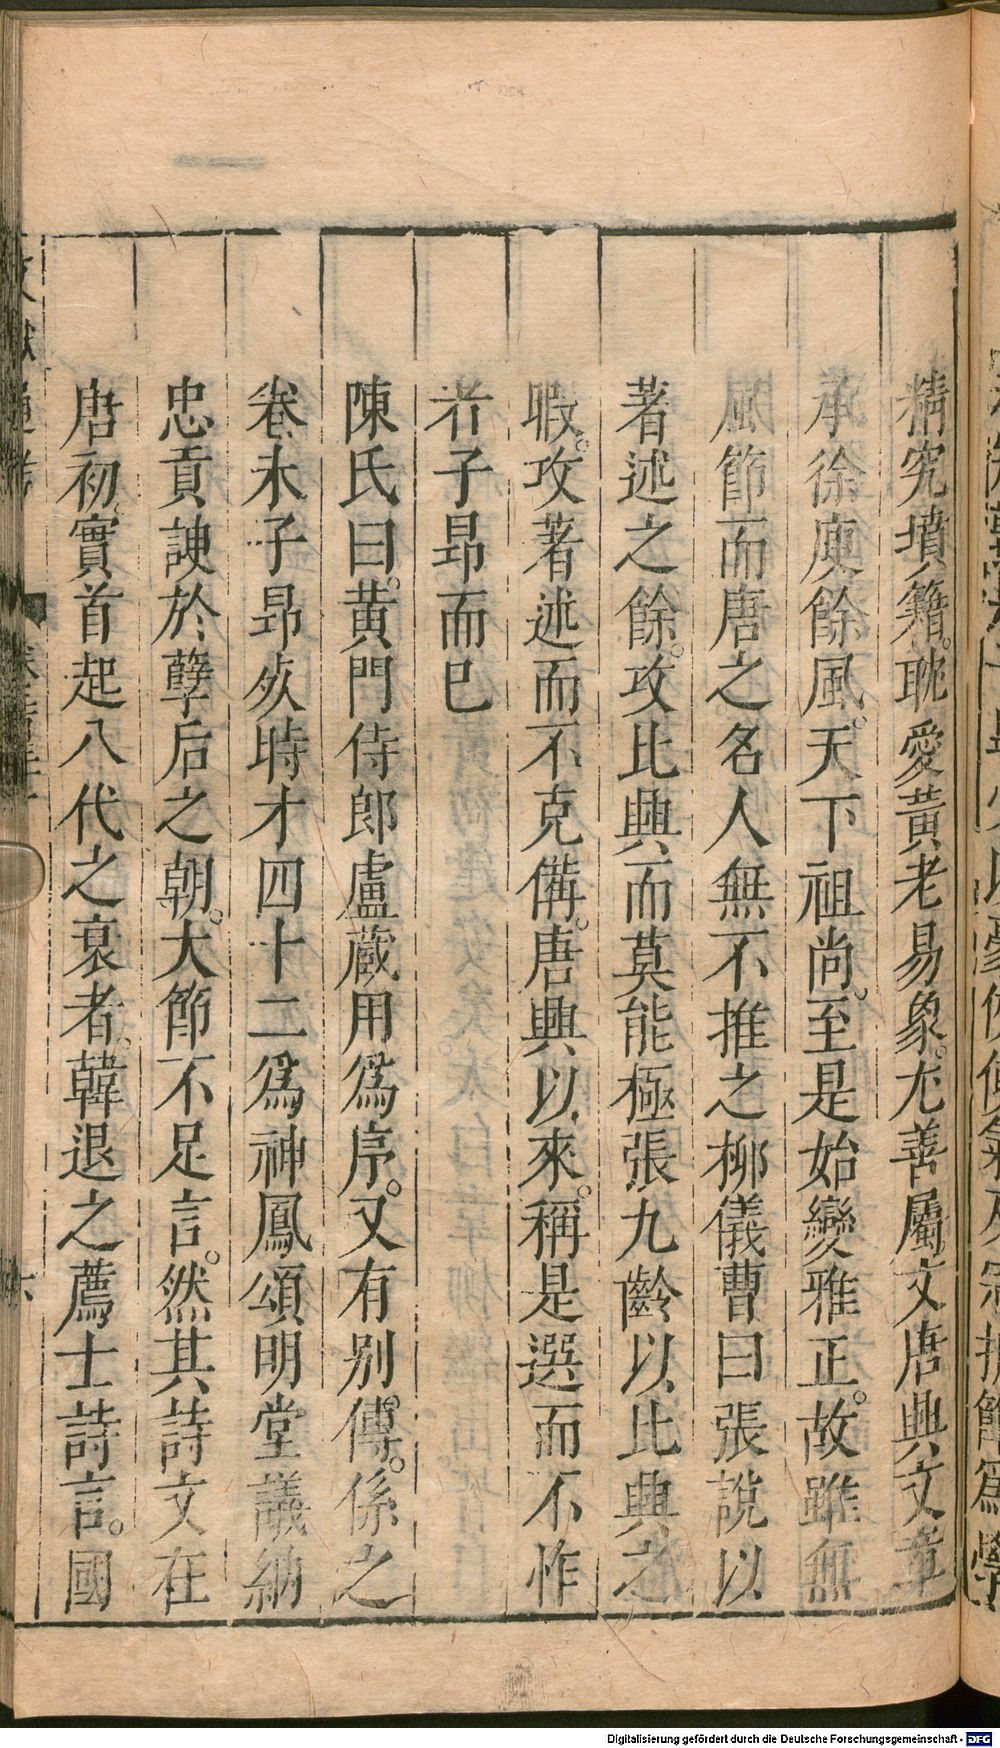 精究墳籍。耽愛黃老易象。尤善屬文唐興文章
承徐庾餘風。天下祖尚。至是始變雅正。故雖無
風節而唐之名人無不推之柳儀曹曰張說以
著述之餘。攻比興而莫能極張九齡以比興之
暇。攻著述而不克備。唐興以來。稱是選而不怍
者子昻而巳
陳氏曰。黃門侍郎盧藏用爲序。又有别傳。係之
卷末子昻死時才四十二爲神鳳頌明堂議納
忠貢諛於孽后之朝。大節不足言。然其詩文在
唐初。實首起八代之衰者。韓退之薦士詩言。國
文獻通考
六
Digitalisierung gefördert durch die Deutsche Forschungsgemeinschaft - DFG